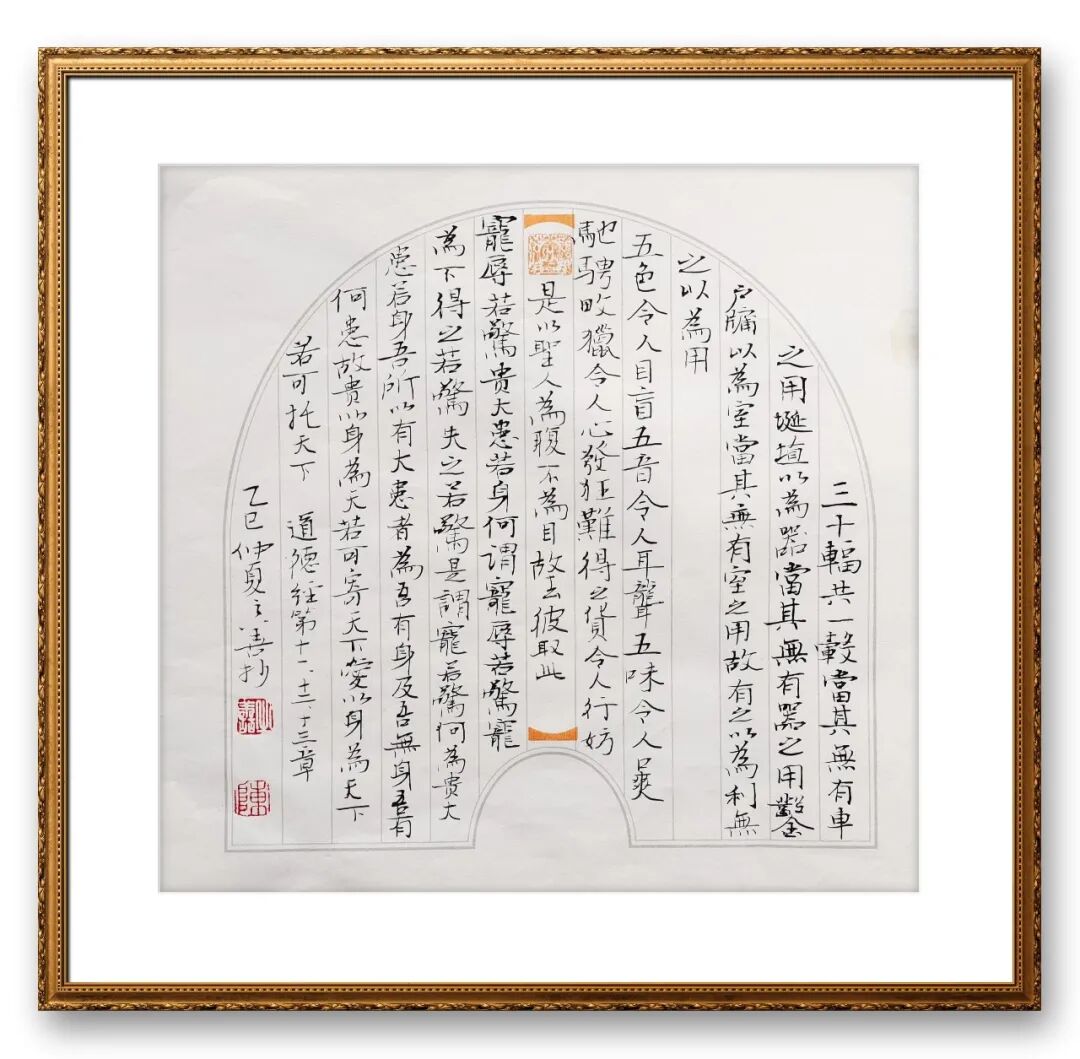 三十輻共一轂當其無有車
之用埏埴以為器當其無有器之用鑿
户牖以為室當其無有室之用故有之以為利無
之以為用
五色令人目盲五音令人耳聾五味令人口爽
馳騁畋獵令人心發狂難得之貨令人行妨
是以聖人為腹不為目故去彼取此
寵辱若驚貴大患若身何謂寵辱若驚寵
為下得之若驚失之若驚是謂寵若驚何為貴大
患若身吾所以有大患者為吾有身及吾無身吾有
何患故貴以身為天若可寄天下愛以身為天下
若可托天下 道德經第十一、十二、十三章
乙巳仲夏立善抄
陳